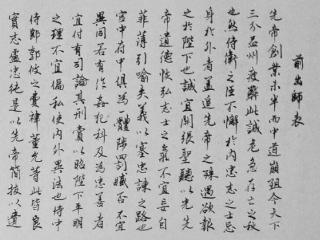 前出師表
先帝創業未半而中道崩殂今天下
三分益州疲敝此誠危急存亡之秋
也然侍衛之臣不懈於內忠志之士忘
身於外者蓋追先帝之殊遇欲報
之於陛下也誠宜開張聖聽以光先
帝遺德恢弘志士之氣不宜妄自
菲薄引喻失義以塞忠諫之路也
宮中府中俱為一體陟罰臧否不宜
異同若有作姦犯科及為忠善者
宜付有司論其刑賞以昭陛下平明
之理不宜偏私使內外異法也侍中
侍郎郭攸之費禕董允等此皆良
實志慮忠純是以先帝簡拔以遺